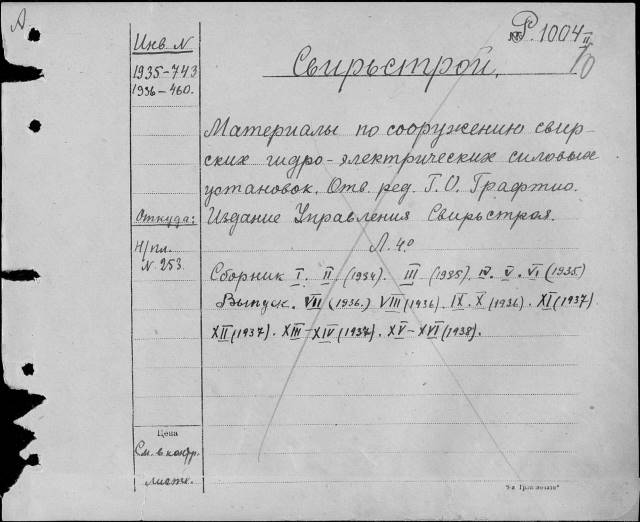 А
P. 1004 II/10
Инв. N
1935-743
1936-460.
Свирьстрой.
Материалы по сооружению свир-
ских гидро-электрических силовых
установок. Отв. ред. Г. О. Графтио.
Откуда:
Издание Управления Свирьстроя.
Н/пл.
N. 253.
Л. 4º
Сборник I. II (1934). III (1935). IV. V. VI (1935)
Выпуск. VII (1936.) VIII (1936). IX. X (1936). XI (1937).
XII (1937). XIII-XIV (1937). XV-XVI (1938).
Цена
См. в контр.
листке.